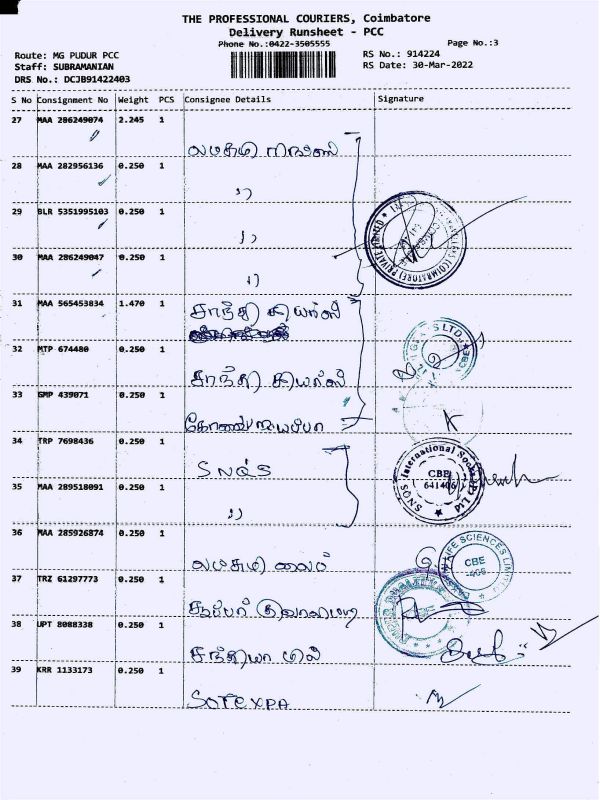 THE PROFESSIONAL COURIERS, Coimbatore
Delivery Runsheet - PCC
Phone No.:0422-3505555
Page No.:3
Route: MG PUDUR PCC
RS No.: 914224
Staff: SUBRAMANIAN
RS Date: 30-Mar-2022
DRS No.: DCJB91422403
S No Consignment No Weight PCS Consignee Details Signature
27 MAA 286249074 2.245 1
லட்சுமி
28 MAA 282956136 0.250 1
,,
29 BLR 5351995103 0.250 1
,,
30 MAA 286249047 0.250 1
,,
31 MAA 565453834 1.470 1 சாந்தி கியர்ஸ்
32 MTP 674480 0.250 1
சாந்தி கியர்ஸ்
33 GMP 439071 0.250 1
34 TRP 7698436 0.250 1
SNQS
35 MAA 289518091 0.250 1
,,
SNQS International Socks (P) Ltd
CBE
641406
36 MAA 285926874 0.250 1
லட்சுமி லைப்
LIFE SCIENCES LIMITED
CBE
37 TRZ 61297773 0.250 1
38 UPT 8088338 0.250 1
சந்தியா மில்
39 KRR 1133173 0.250 1
SOTEXPA
(COIMBATORE) PRIVATE LIMITED